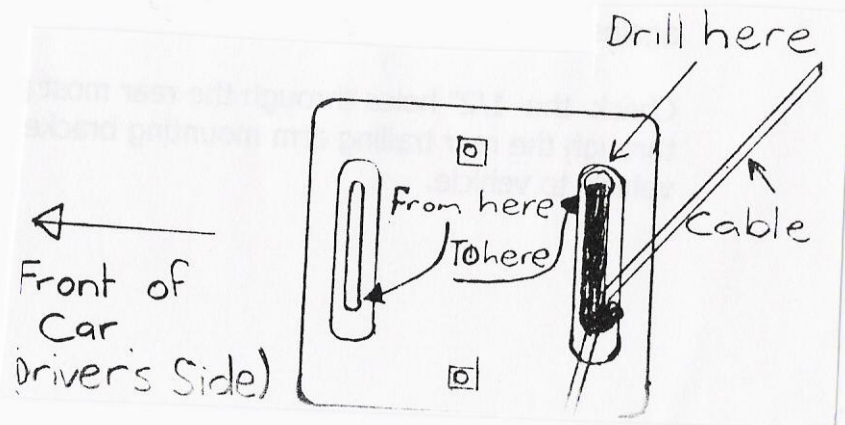 Drill here
From here
To here
Cable
Front of
Car
Driver's Side)